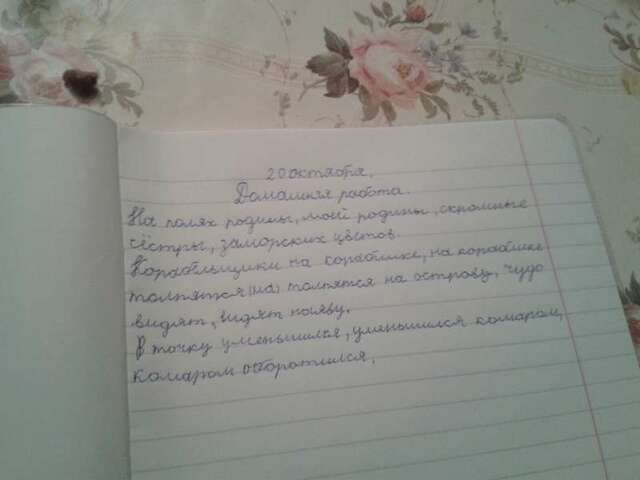 20 октября.
Домашняя работа.
На полях родины, моей родины, скромные
сёстры, заморских цветов.
Корабельщики на кораблике, на кораблике
толпятся (на) толпятся на острову, чудо
видят, видят наяву.
В точку уменьшился, уменьшился комаром,
комаром оборотился.